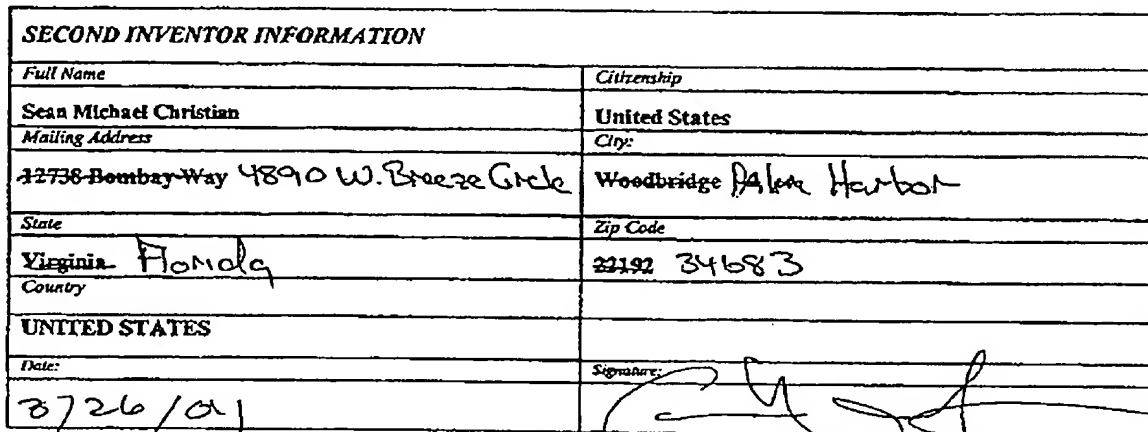 SECOND INVENTOR INFORMATION
Full Name Citizenship
Sean Michael Christian United States
Mailing Address City:
12738 Bombay Way 4890 W. Breeze Circle Woodbridge Palm Harbor
State Zip Code
Virginia Florida 22192 34683
Country
UNITED STATES
Date: Signature:
3/26/01